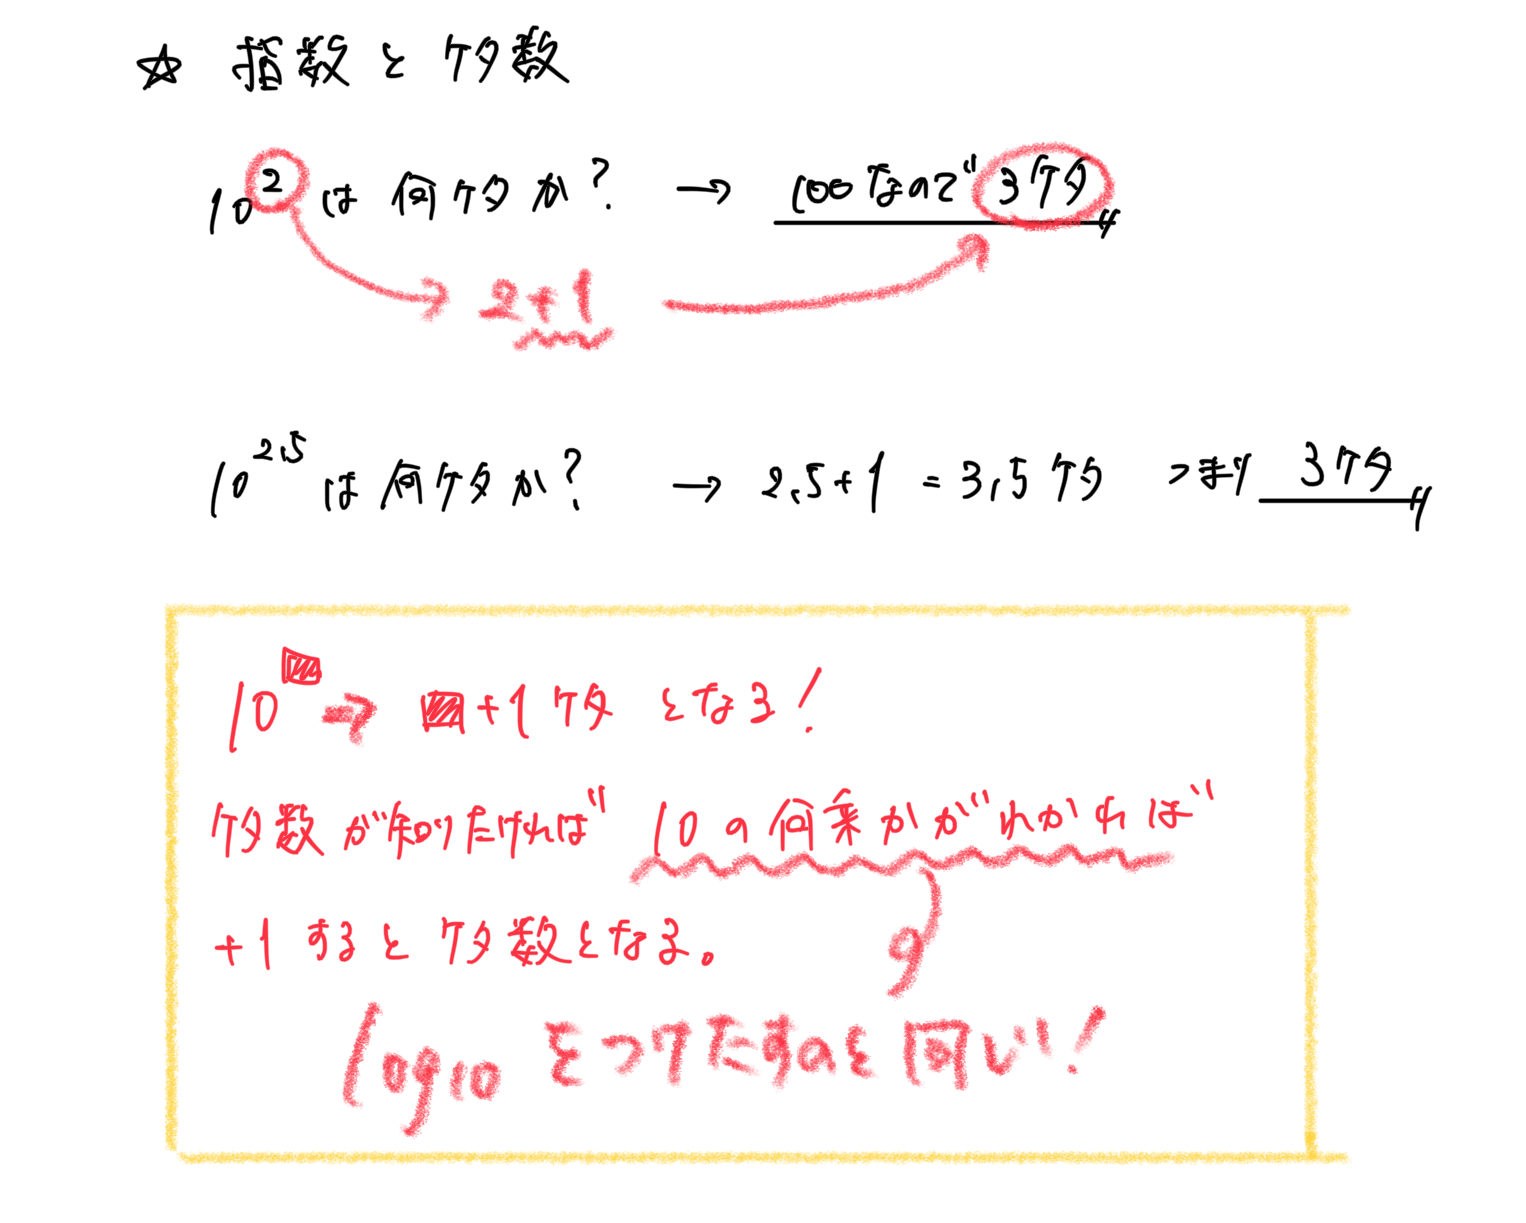 ☆ 指数とケタ数
10² は何ケタか? → 100なので 3ケタ〃
2+1
10^2.5 は何ケタか? → 2.5+1 = 3.5ケタ つまり 3ケタ〃
10^▨ → ▨+1ケタ となる!
ケタ数が知りたければ 10の何乗かがわかれば
+1すると ケタ数となる。
log10 をつけたすのと同じ!